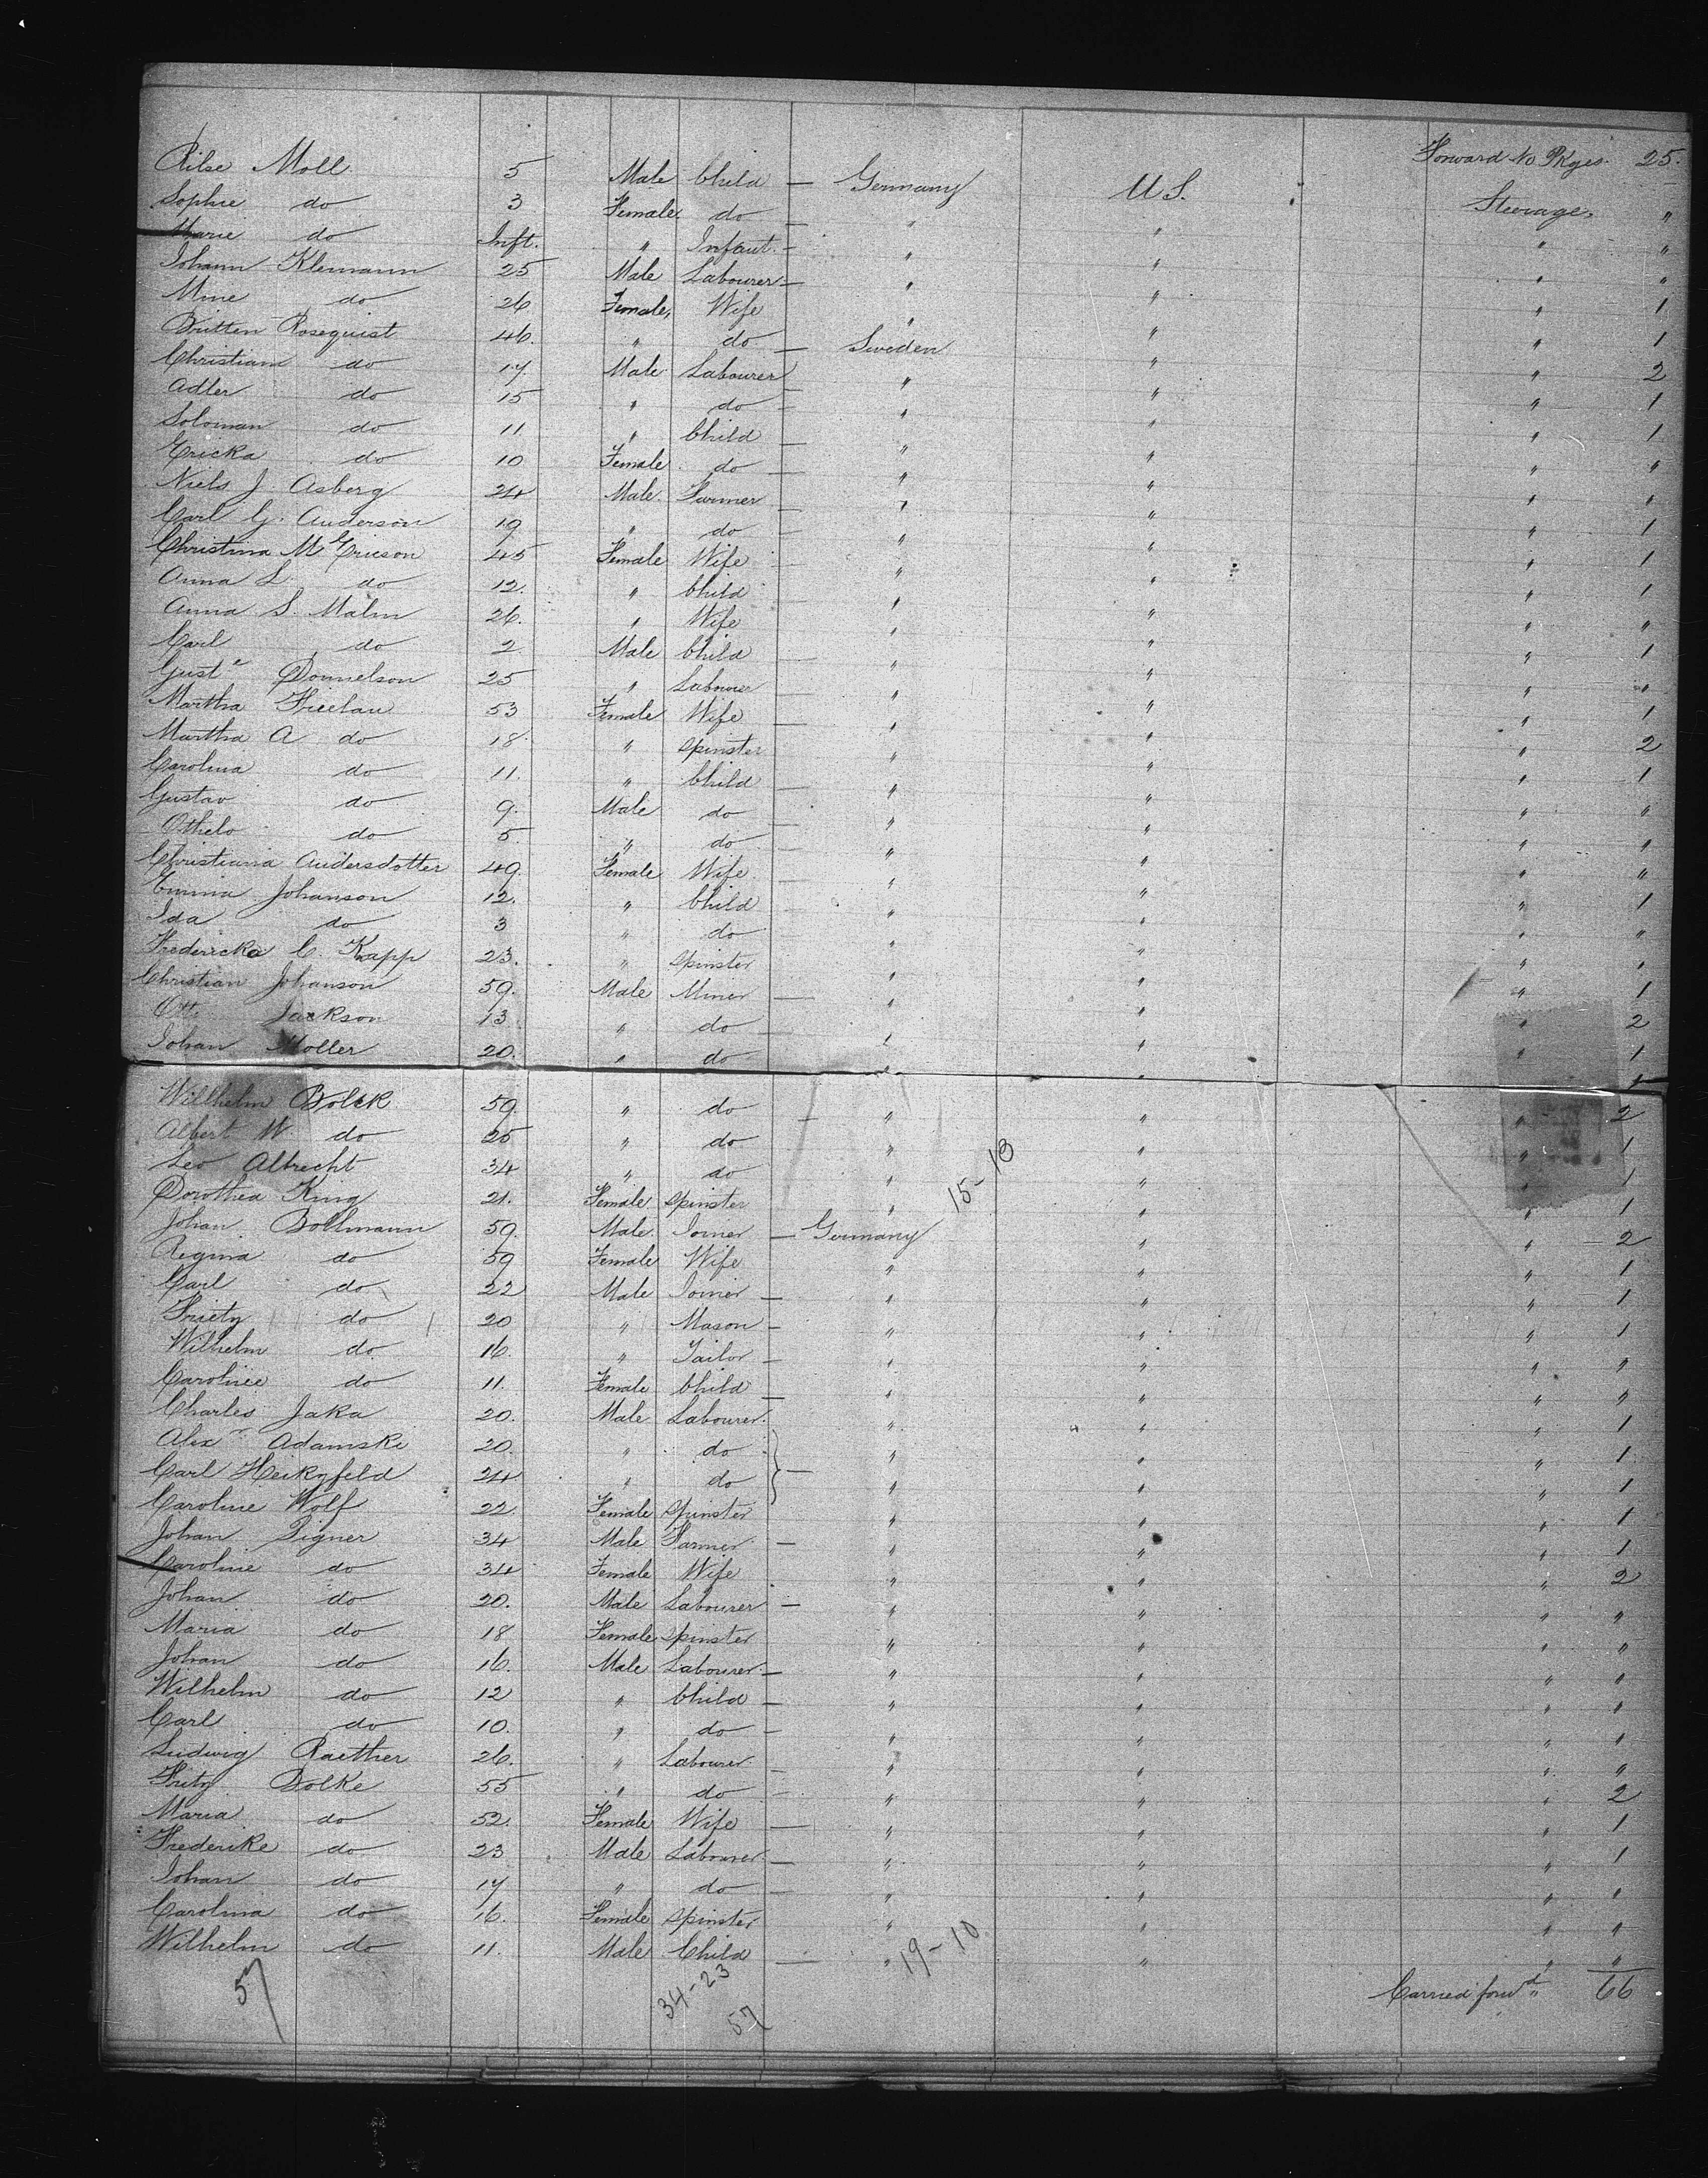 Forward No Pkges. 25.
Rilse Moll 5 Male Child — Germany U.S. Steerage "
Sophie do 3 Female do — " " " "
Marie do Inft. " Infant. — " " " "
Johann Klemann 25 Male Labourer — " " " 1
Mine do 26 Female, Wife " " " 1
Britten Rosequist 46. " do — Sweden " " 2
Christian do 17 Male Labourer " " " 1
Adler do 15 " do — " " " 1
Soloman do 11 " Child — " " " "
Ericka do 10 Female do — " " " "
Niels J. Asberg 24 Male. Farmer " " " 1
Carl G. Anderson 19 " do — " " " 1
Christina M Ericson 45 Female Wife — " " " 1
Anna L. do 12. " Child " " " "
Anna S. Malm 26. " Wife " " " 1
Carl do 2 Male Child — " " " "
Gust Donnelson 25 " Labourer " " " 1
Martha 53 Female Wife — " " " 2
Martha A do 18 " Spinster " " " 1
Carolina do 11. " Child — " " " "
Gustav do 9. Male do — " " " "
Othelo do 5. " do — " " " "
Christiana Andersdotter 49. Female Wife — " " " 1
Emma Johanson 12. " Child — " " " "
Ida do 3 " do " " " "
Fredericka C. Kapp 23. " Spinster " " " 1
Christian Johanson 59. Male Miner — " " " 2
Otto Jackson 13 " do — " " " 1
Johan Moller 20. " do " " 1
Willhelm Bolck 59. " do — " " " 2
Albert W. do 25 " do " " " 1
Leo Albrecht 34 " do " " " 1
Dorothea King 21. Female Spinster " " " 1
15-13
Johan Bollmann 59. Male. Joiner — Germany " " 2
Regina do 59 Female Wife " " " 1
Carl do 22 Male Joiner — " " " 1
Frietz do 20 " Mason — " " " 1
Wilhelm do 16. " Tailor — " " " "
Caroline do 11. Female Child — " " " "
Charles Jaka 20. Male Labourer. " " " 1
Alex Adamski 20. " do " " " 1
Carl Heikyfeld 24 " do — " " " 1
Caroline Wolf 22. Female Spinster " " " 1
Johan Signer 34 Male Farmer — " " " 1
Caroline do 34 Female Wife " " " 2
Johan do 20. Male Labourer — " " " "
Maria do 18 Female Spinster " " " "
Johan do 16. Male Labourer — " " " "
Wilhelm do 12 " Child — " " " "
Carl do 10. " do — " " " "
Ludwig Raether 26. " Labourer — " " " "
Fritz Bolke 55 " do — " " " 2
Maria do 52. Female Wife — " " " 1
Frederike do 23 Male Labourer — " " " 1
Johan do 17 " do — " " " "
Carolina do 16. Female Spinster " " " "
Wilhelm do 11. Male Child — " " " "
19-10
57 34-23 Carried forwd " 66
57